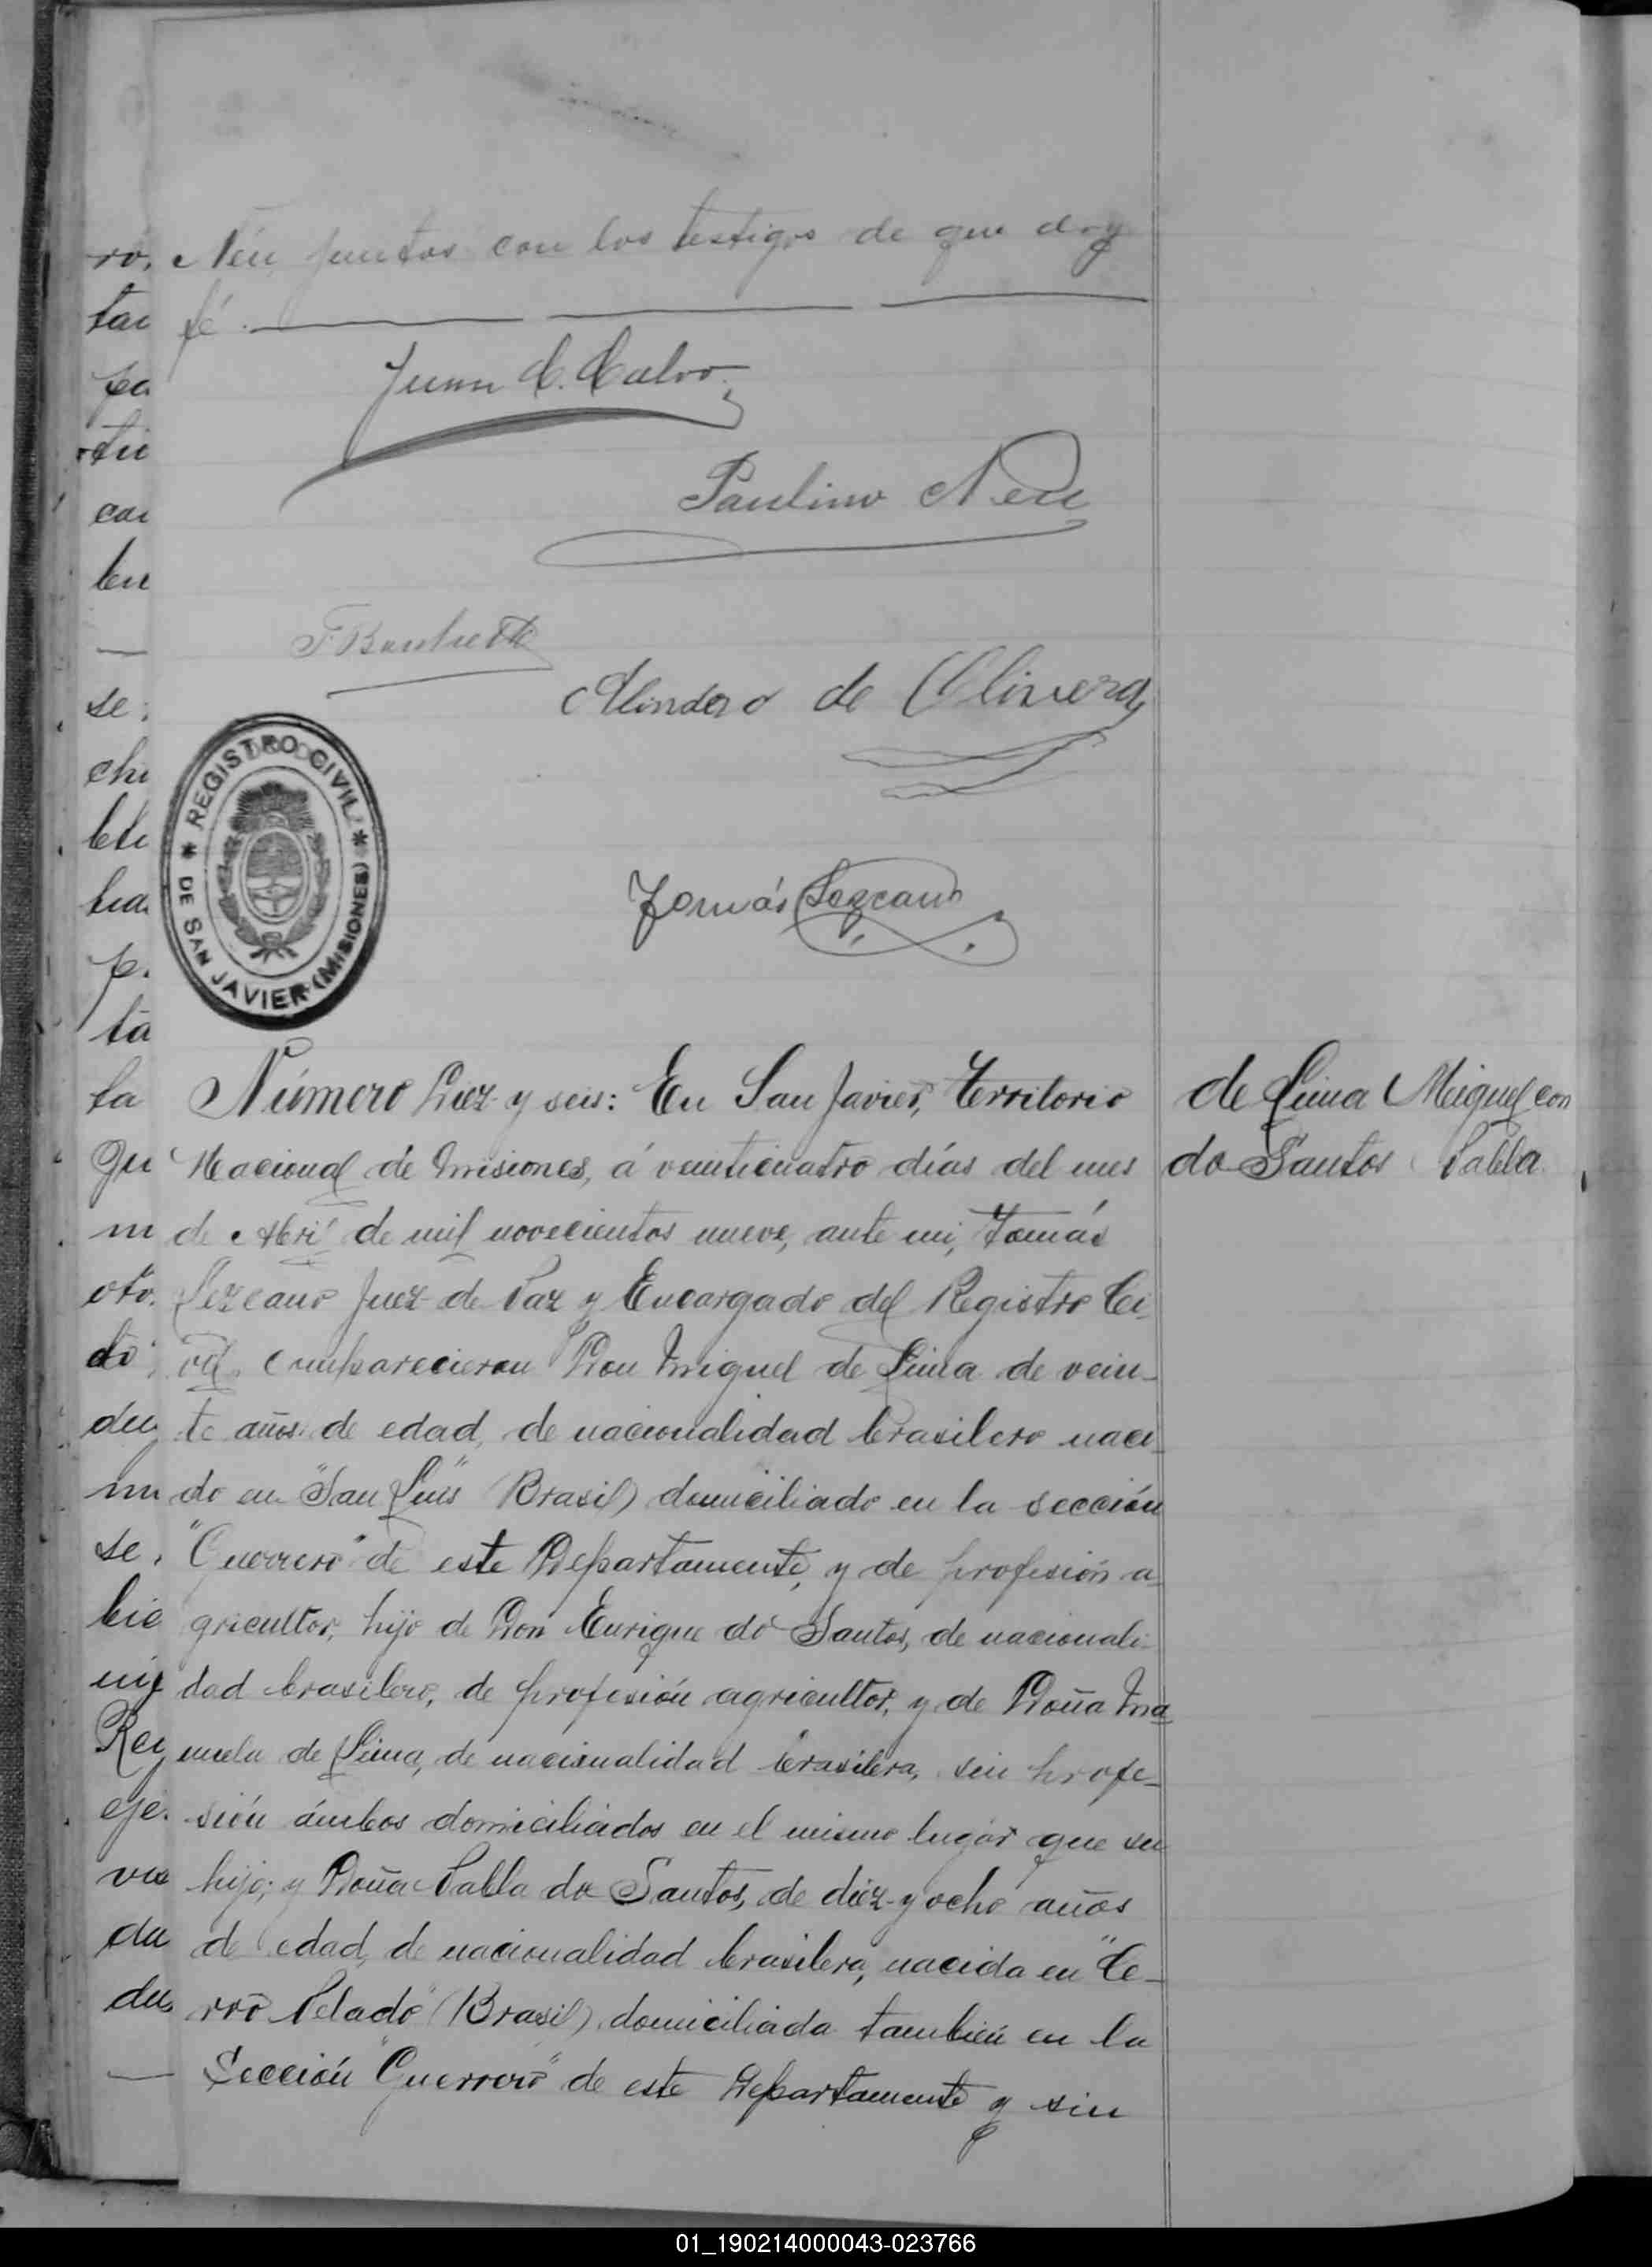 Neu juntos con los testigos de que doy
fé.
Juan C. Calvo
Paulino Neu
Alindoro de Olivera
REGISTRO CIVIL
DE SAN JAVIER (MISIONES)
Tomás Lezcano
Número Diez y seis: En San Javier, Territorio
Nacional de Misiones, á veinticuatro días del mes
de Abril de mil novecientos nueve, ante mi, Tomás
Lezcano Juez de Paz y Encargado del Registro Ci-
vil, comparecieron Don Miguel de Lima de vein-
te años de edad, de nacionalidad brasilero naci-
do en "San Luis" (Brasil) domiciliado en la sección
"Guerrero" de este Departamento, y de profesión a-
gricultor, hijo de Don Enrique do Santos, de nacionali-
dad brasilero, de profesión agricultor, y de Doña Ma-
nuela de Lima, de nacionalidad brasilera, sin profe-
sión ámbos domiciliados en el mismo lugar que su
hijo; y Doña Pabla do Santos, de diez y ocho años
de edad, de nacionalidad brasilera, nacida en "Ce-
rro Pelado" (Brasil), domiciliada también en la
Sección "Guerrero" de este Departamento y sin
de Lima Miguel con
do Santos Pabla
ro,
tar
pa
tie
car
ben
se
che
ble
ha
p.
ta
la
Qu
m
oto.
do
du
mi
se
bie
uiz
Rey
eje.
ve
da
du
01_190214000043-023766